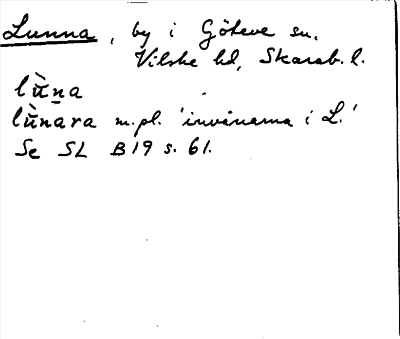 Lunna, by i Göteve sn,
Vilske hd, Skarab. l.
lū̀n̠a
lū̀nara m.pl. 'invånarna i L.'
Se SL B19 s. 61.